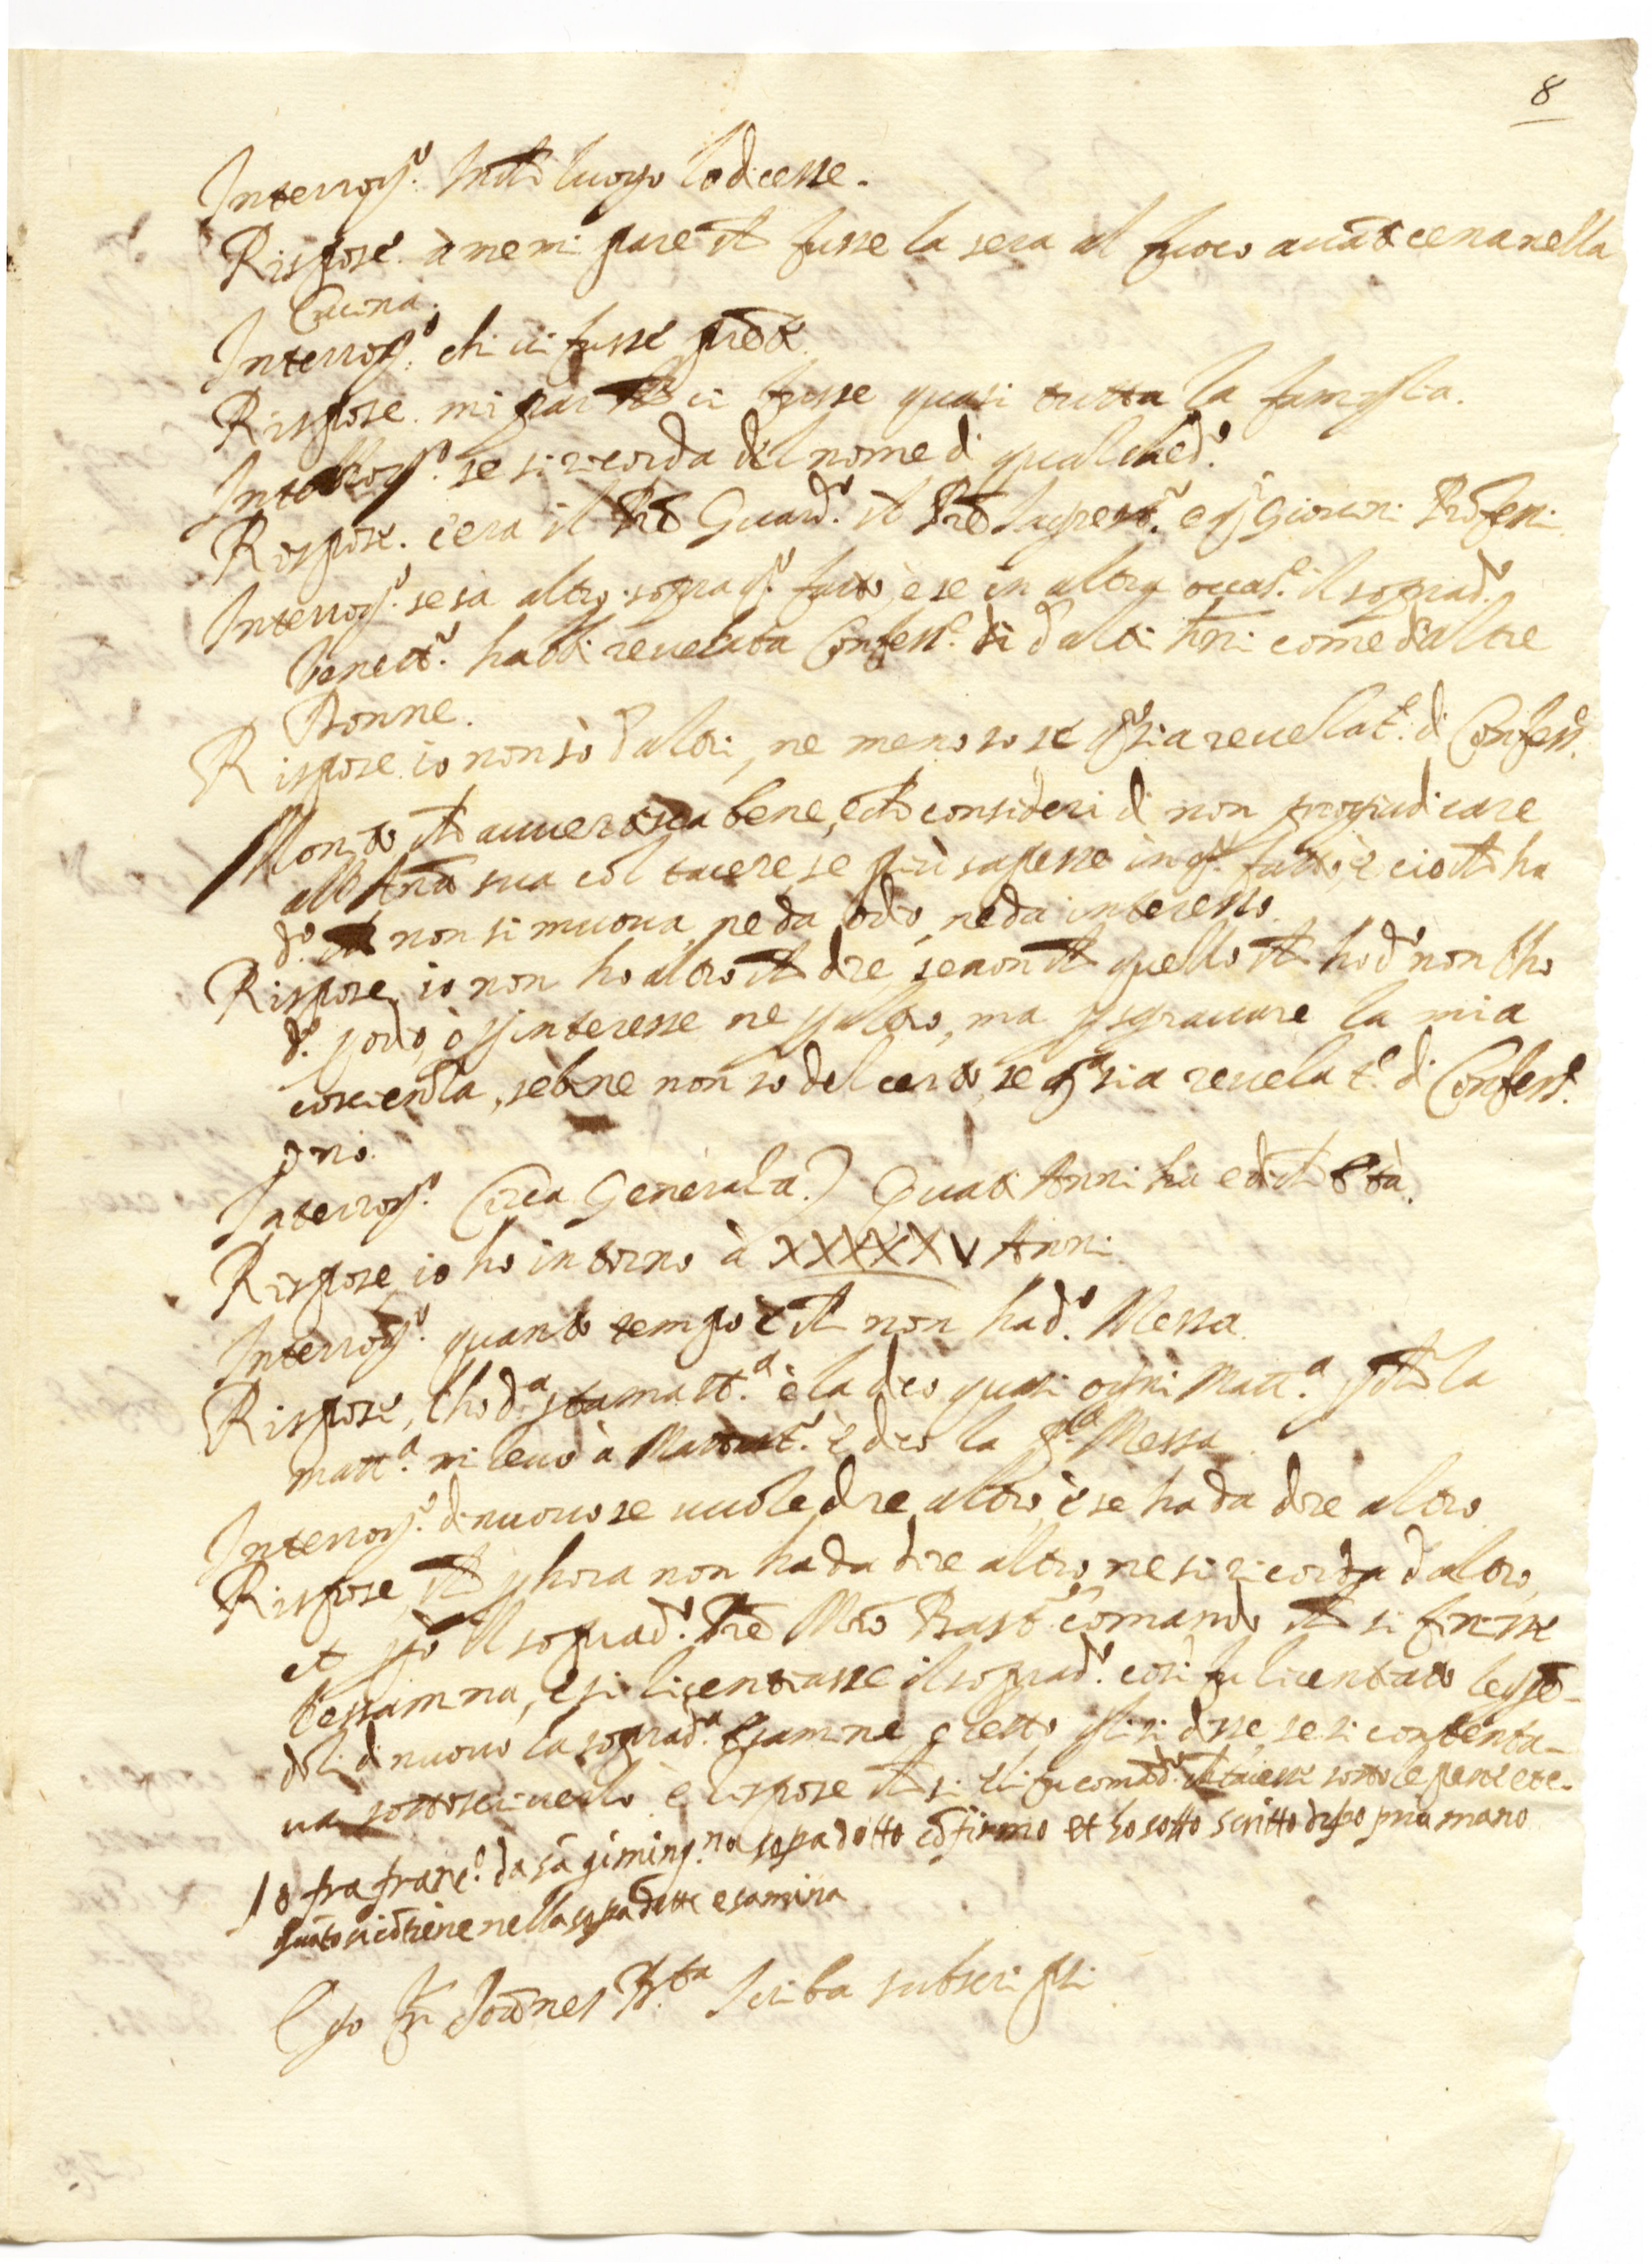 8
Interrog.º In chē luogo lo dicesse.
Rispose. à me mi pare ch fusse la sera al fuoco auāti cena nella
Cucina.
Interrog.º chi ui fusse prēte.
Rispose. mi par ch ui fusse quasi tutta la famiglia.
Interrog.º se si ricorda del nome di qualched.º
Rispose. c'era il Prē Guard.º il Prē e Giovani Professi.
Interrog.º se sà altro sopra q.º fatto, è se in altra occas.e il soprad.º
habbi reuelata Confess.e sì d'altri come d'altre
Donne.
Rispose. io non sò d'altri, ne meno so se q.º sia reuelat.e di Confess.e
Monito chē auuertisca bene, e chē consideri di non pregiudicare
all'Anā sua col tacere, se più sapesse in q.º fatto, è ciò chē ha
d.º non si muoua, ne da odio, ne da interesso.
Rispose, io non ho altro ch dire, se non ch quello ch ho d.º non l'ho
d.º p odio, ò p interesse ne p altro, ma p sgrauare la mia
coscienza, sebene non so del certo, se q.º sia reuelat.e di Confess.e
ò nò.
Interrog.º (Circa Generalia.) Quati Anni ha e di chē Età.
Rispose io ho intorno à XXXXXV Anni
Interrog.º quanto tempo è ch non ha d.º Messa.
Rispose, l'ho d.a stamatt.a è la dico quasi ogni Matt.a p chē la
matt.a mi leuo à Mattut.º è dico la S.ta Messa.
Interrog.º di nuouo se uuole dire altro, è se ha da dire altro.
Rispose, ch p hora non ha da dire altro, ne si ricorda d'altro,
et p.ò il soprad.º Prē Mrō Bast.º comandò ch si finisse
l'essamina, e si licentiasse il soprad.º così fu licentiato leggē-
doli di nuouo la soprad.a Esamine e letto gli si disse, se si contenta-
ua sottoscriuerlo è rispose ch sì gli fu comād.º ch tacesse sotto le pene etc.
Io fra franc.º da sā giming.no sopa dotto cōfirmo et ho sotto scritto di pria mano
quāto si cōtiene nella sopadette esamina
Ego fr Joānes B.ta scriba subscripsi